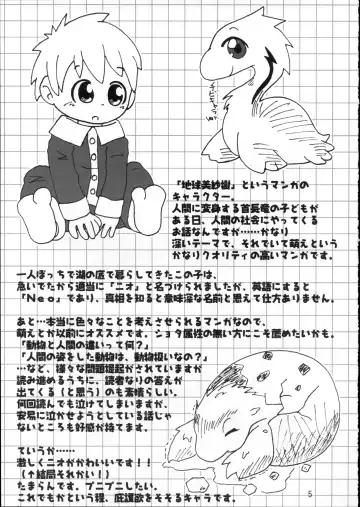 『地球美紗樹』というマンガの
キャラクター。
人間に変身する首長竜の子どもが
ある日、人間の社会にやってくる
お話なんですが……かなり
深いテーマで、それでいて萌えという
かなりクオリティの高いマンガです。
一人ぼっちで湖の底で暮らしてきたこの子は、
急いでたから適当に「ニオ」と名づけられましたが、英語にすると
「Neo」であり、真相を知ると意味深な名前と思えて仕方ありません。
あと…本当に色々なことを考えさせられるマンガなので、
萌えとか以前にオススメです。ショタ属性の無い方にこそ薦めたいかも。
「動物と人間の違いって何?」
「人間の姿をした動物は、動物扱いなの?」
……など、様々な問題提起がされていますが
読み進めるうちに、読者なりの答えが
出てくる(と思う)のも素晴らしい。
何回読んでも泣けてしまいますが、
安易に泣かせようとしている話じゃ
ないところも好感が持てます。
ていうか……
激しくニオがかわいいです!!
(↑結局それかい!)
たまらんです。プニプニしたい。
これでもかという程、庇護欲をそそるキャラです。
5